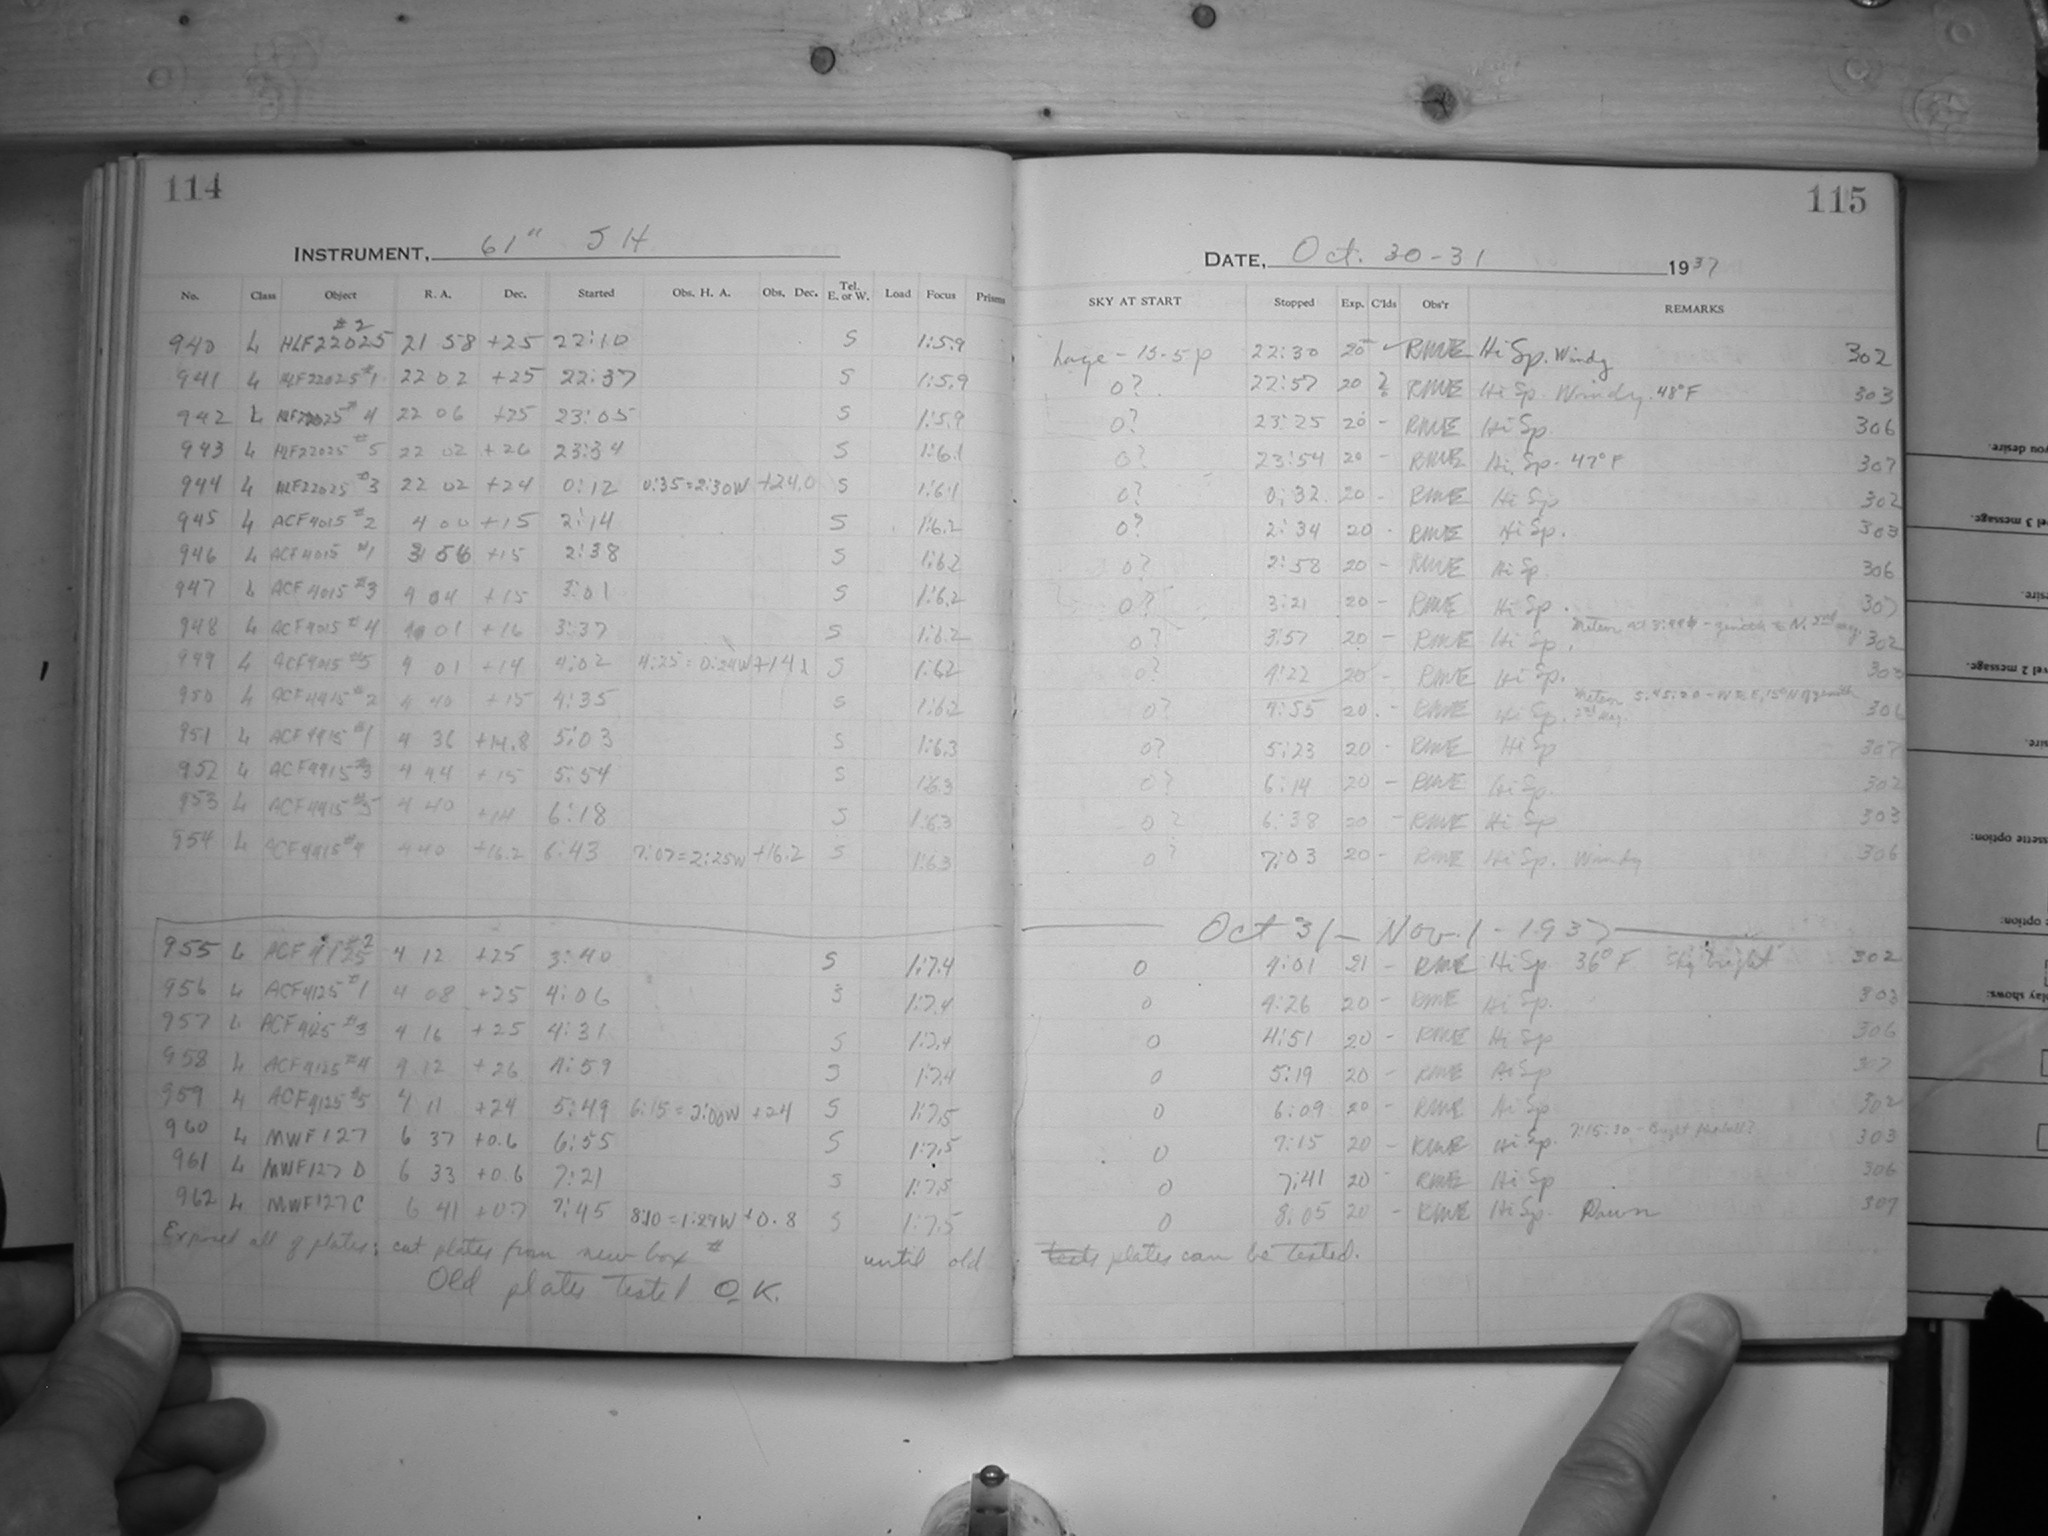 114
INSTRUMENT, 61" JH
No. Class Object R. A. Dec. Started Obs. H. A. Obs. Dec. Tel. E. or W. Load Focus Prisms
940 L HLF22025 #2 21 58 +25 22:10 S 1:5.9
941 L HLF22025 #1 22 02 +25 22:37 S 1:5.9
942 L HLF22025 #4 22 06 +25 23:05 S 1:5.9
943 L HLF22025 #5 22 02 +26 23:34 S 1:6.1
944 L HLF22025 #3 22 02 +24 0:12 0:35=2:30W +24.0 S 1:6.1
945 L ACF4015 #2 4 00 +15 2:14 S 1:6.2
946 L ACF4015 #1 3 56 +15 2:38 S 1:6.2
947 L ACF4015 #3 4 04 +15 3:01 S 1:6.2
948 L ACF4015 #4 4 01 +16 3:37 S 1:6.2
949 L ACF4015 #5 4 01 +14 4:02 4:25=0:24W +14.1 S 1:6.2
950 L ACF4415 #2 4 40 +15 4:35 S 1:6.2
951 L ACF4415 #1 4 36 +14.8 5:03 S 1:6.3
952 L ACF4415 #3 4 44 +15 5:54 S 1:6.3
953 L ACF4415 #5 4 40 +14 6:18 S 1:6.3
954 L ACF4415 #4 4 40 +16.2 6:43 7:07=2:25W +16.2 S 1:6.3
955 L ACF4125 #2 4 12 +25 3:40 S 1:7.4
956 L ACF4125 #1 4 08 +25 4:06 S 1:7.4
957 L ACF4125 #3 4 16 +25 4:31 S 1:7.4
958 L ACF4125 #4 4 12 +26 4:59 S 1:7.4
959 L ACF4125 #5 4 11 +24 5:49 6:15=2:00W +24 S 1:7.5
960 L MWF127 6 37 +0.6 6:55 S 1:7.5
961 L MWF127 D 6 33 +0.6 7:21 S 1:7.5
962 L MWF127C 6 41 +0.7 7:45 8:10=1:29W +0.8 S 1:7.5
Exposed all of plates; cut plates from new box # until old
Old plates tested O.K.
115
DATE, Oct. 30-31 1937
SKY AT START Stopped Exp. C'lds Obs'r REMARKS
22:30 20 - RME Hi Sp. Windy 302
0? 22:57 20 ? RME Hi Sp. Windy. 48°F 303
0? 23:25 20 - RME Hi Sp. 306
0? 23:54 20 - RME Hi Sp. 47°F 307
0? 0:32 20 - RME Hi Sp 302
0? 2:34 20 - RME Hi Sp. 303
0? 2:58 20 - RME Hi Sp. 306
0? 3:21 20 - RME Hi Sp. 307
0? 3:57 20 - RME Hi Sp. Meteor at 302
0? 4:22 20 - RME Hi Sp. 303
0? 4:55 20 - RME Hi Sp. Meteor 306
0? 5:23 20 - RME Hi Sp 307
0? 6:14 20 - RME Hi Sp. 302
0? 6:38 20 - RME Hi Sp 303
0? 7:03 20 - RME Hi Sp. Windy 306
Oct 31 - Nov. 1 - 1937
0 4:01 21 - RME Hi Sp 36°F Sky bright 302
0 4:26 20 - RME Hi Sp. 303
0 4:51 20 - RME Hi Sp 306
0 5:19 20 - RME Hi Sp 307
0 6:09 20 - RME Hi Sp 302
0 7:15 20 - RME Hi Sp. 7:15:30 - Bright fireball? 303
0 7:41 20 - RME Hi Sp 306
0 8:05 20 - RME Hi Sp. Dawn 307
plates can be tested.
you desire.
vel 3 message.
vel 2 message.
ssette option:
option:
play shows: